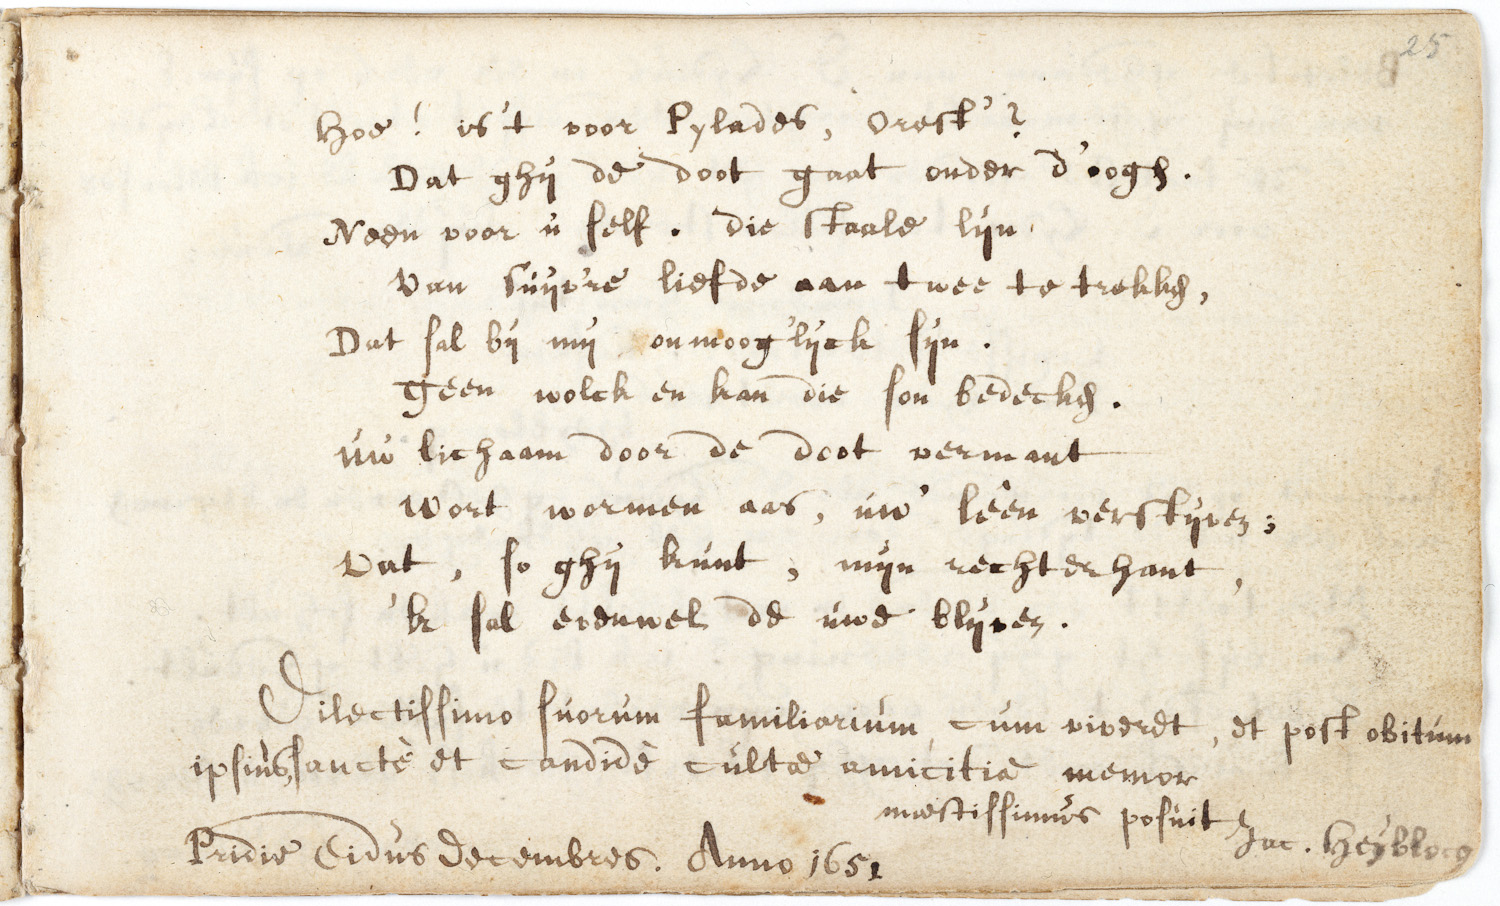 25
Hoe! is't voor Pylades, Orest'?
Dat ghij de doot gaat onder d'oogh.
Neen voor u self. Die staale lijn
Van suyv're liefde aan twee te trekken,
Dat sal bij mij onmoog'lijck sijn.
Geen wolck en kan die son bedecken.
Uw lichaam door de doot vermant
Wort wormen aas, uw' leên verstijven;
Vat, so ghij kunt, mijn rechterhant,
'k sal evenwel de uwe blijven.
Dilectissimo suorum familiarium, cum viveret, et post obitum
ipsius, sanctè et candidè cultae amicitiae memor
maestissimus posuit Jac. Heyblocq
Pridie Eidus Decembres. Anno 1651